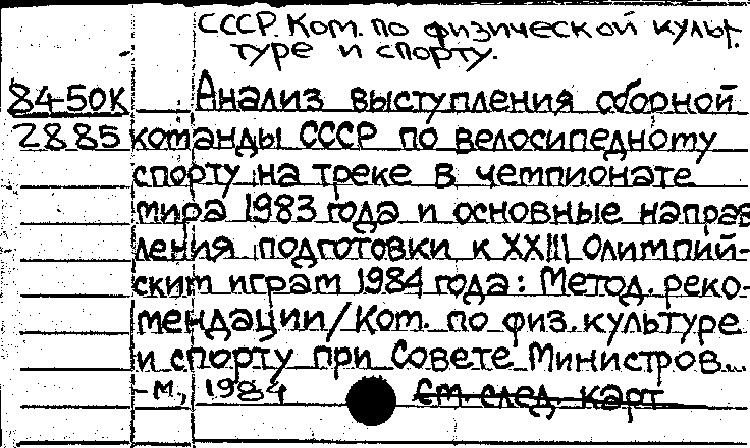 СССР. Ком. по физической культ.
туре и спорту.
84-50К Анализ выступления сборной
2885 команды СССР по велосипедному
спорту на треке в чемпионате
мира 1983 года и основные направ
ления подготовки к XXIII Олимпий-
ским играм 1984 года: Метод. реко-
мендации/Ком. по физ. культуре
и спорту при Совете Министров...
-М., 1984 См. след. карт